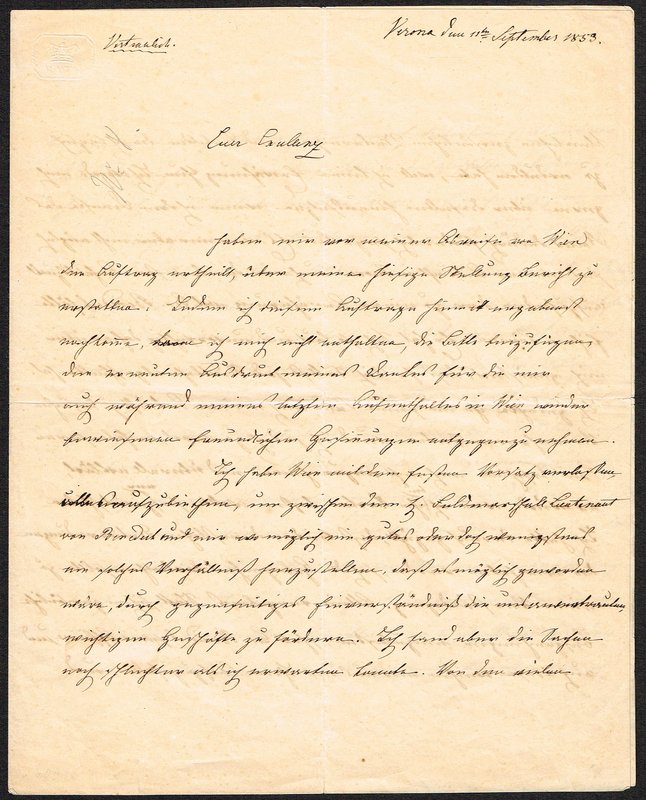 Vertraulich.
Verona den 11ten September 1853.
Euer Excellenz
haben mir vor meiner Abreise von Wien
den Auftrag ertheilt, über meine hiesige Stellung Bericht zu
erstatten. Indem ich diesem Auftrage hiemit ergebenst
nachkome, kann ich mich nicht enthalten, die Bitte beizufügen,
den erneuten Ausdruck meines Dankes für die mir
auch während meines letzten Aufenthaltes in Wien wieder
bewiesenen freundlichen Gesinnungen entgegenzunehmen.
Ich habe Wien mit dem festen Vorsatz verlassen
alles aufzubiethen, um zwischen dem H. Feldmarschall Lieutenant
von und mir wo möglich ein gutes oder doch wenigstens
ein solches Verhältniß herzustellen, daß es möglich geworden
wäre, durch gegenseitiges Einverständniß die uns anvertrauten
wichtigen Geschäfte zu fördern. Ich fand aber die Sachen
noch schlechter als ich erwarten konnte. Von den vielen